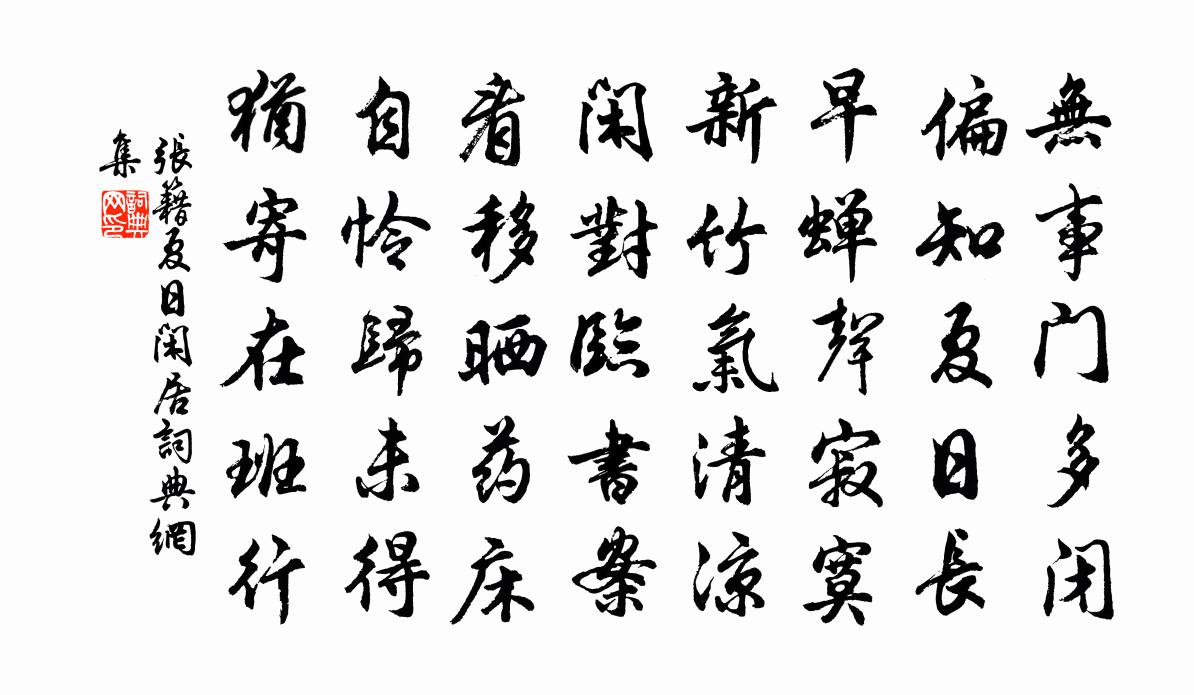 無事门多闭
偏知夏日長
早蝉聲寂寞
新竹氣清凉
闲對臨書案
看移晒药床
自怜歸未得
猶寄在班行
張籍夏日闲居詞典網
集
詞典网印